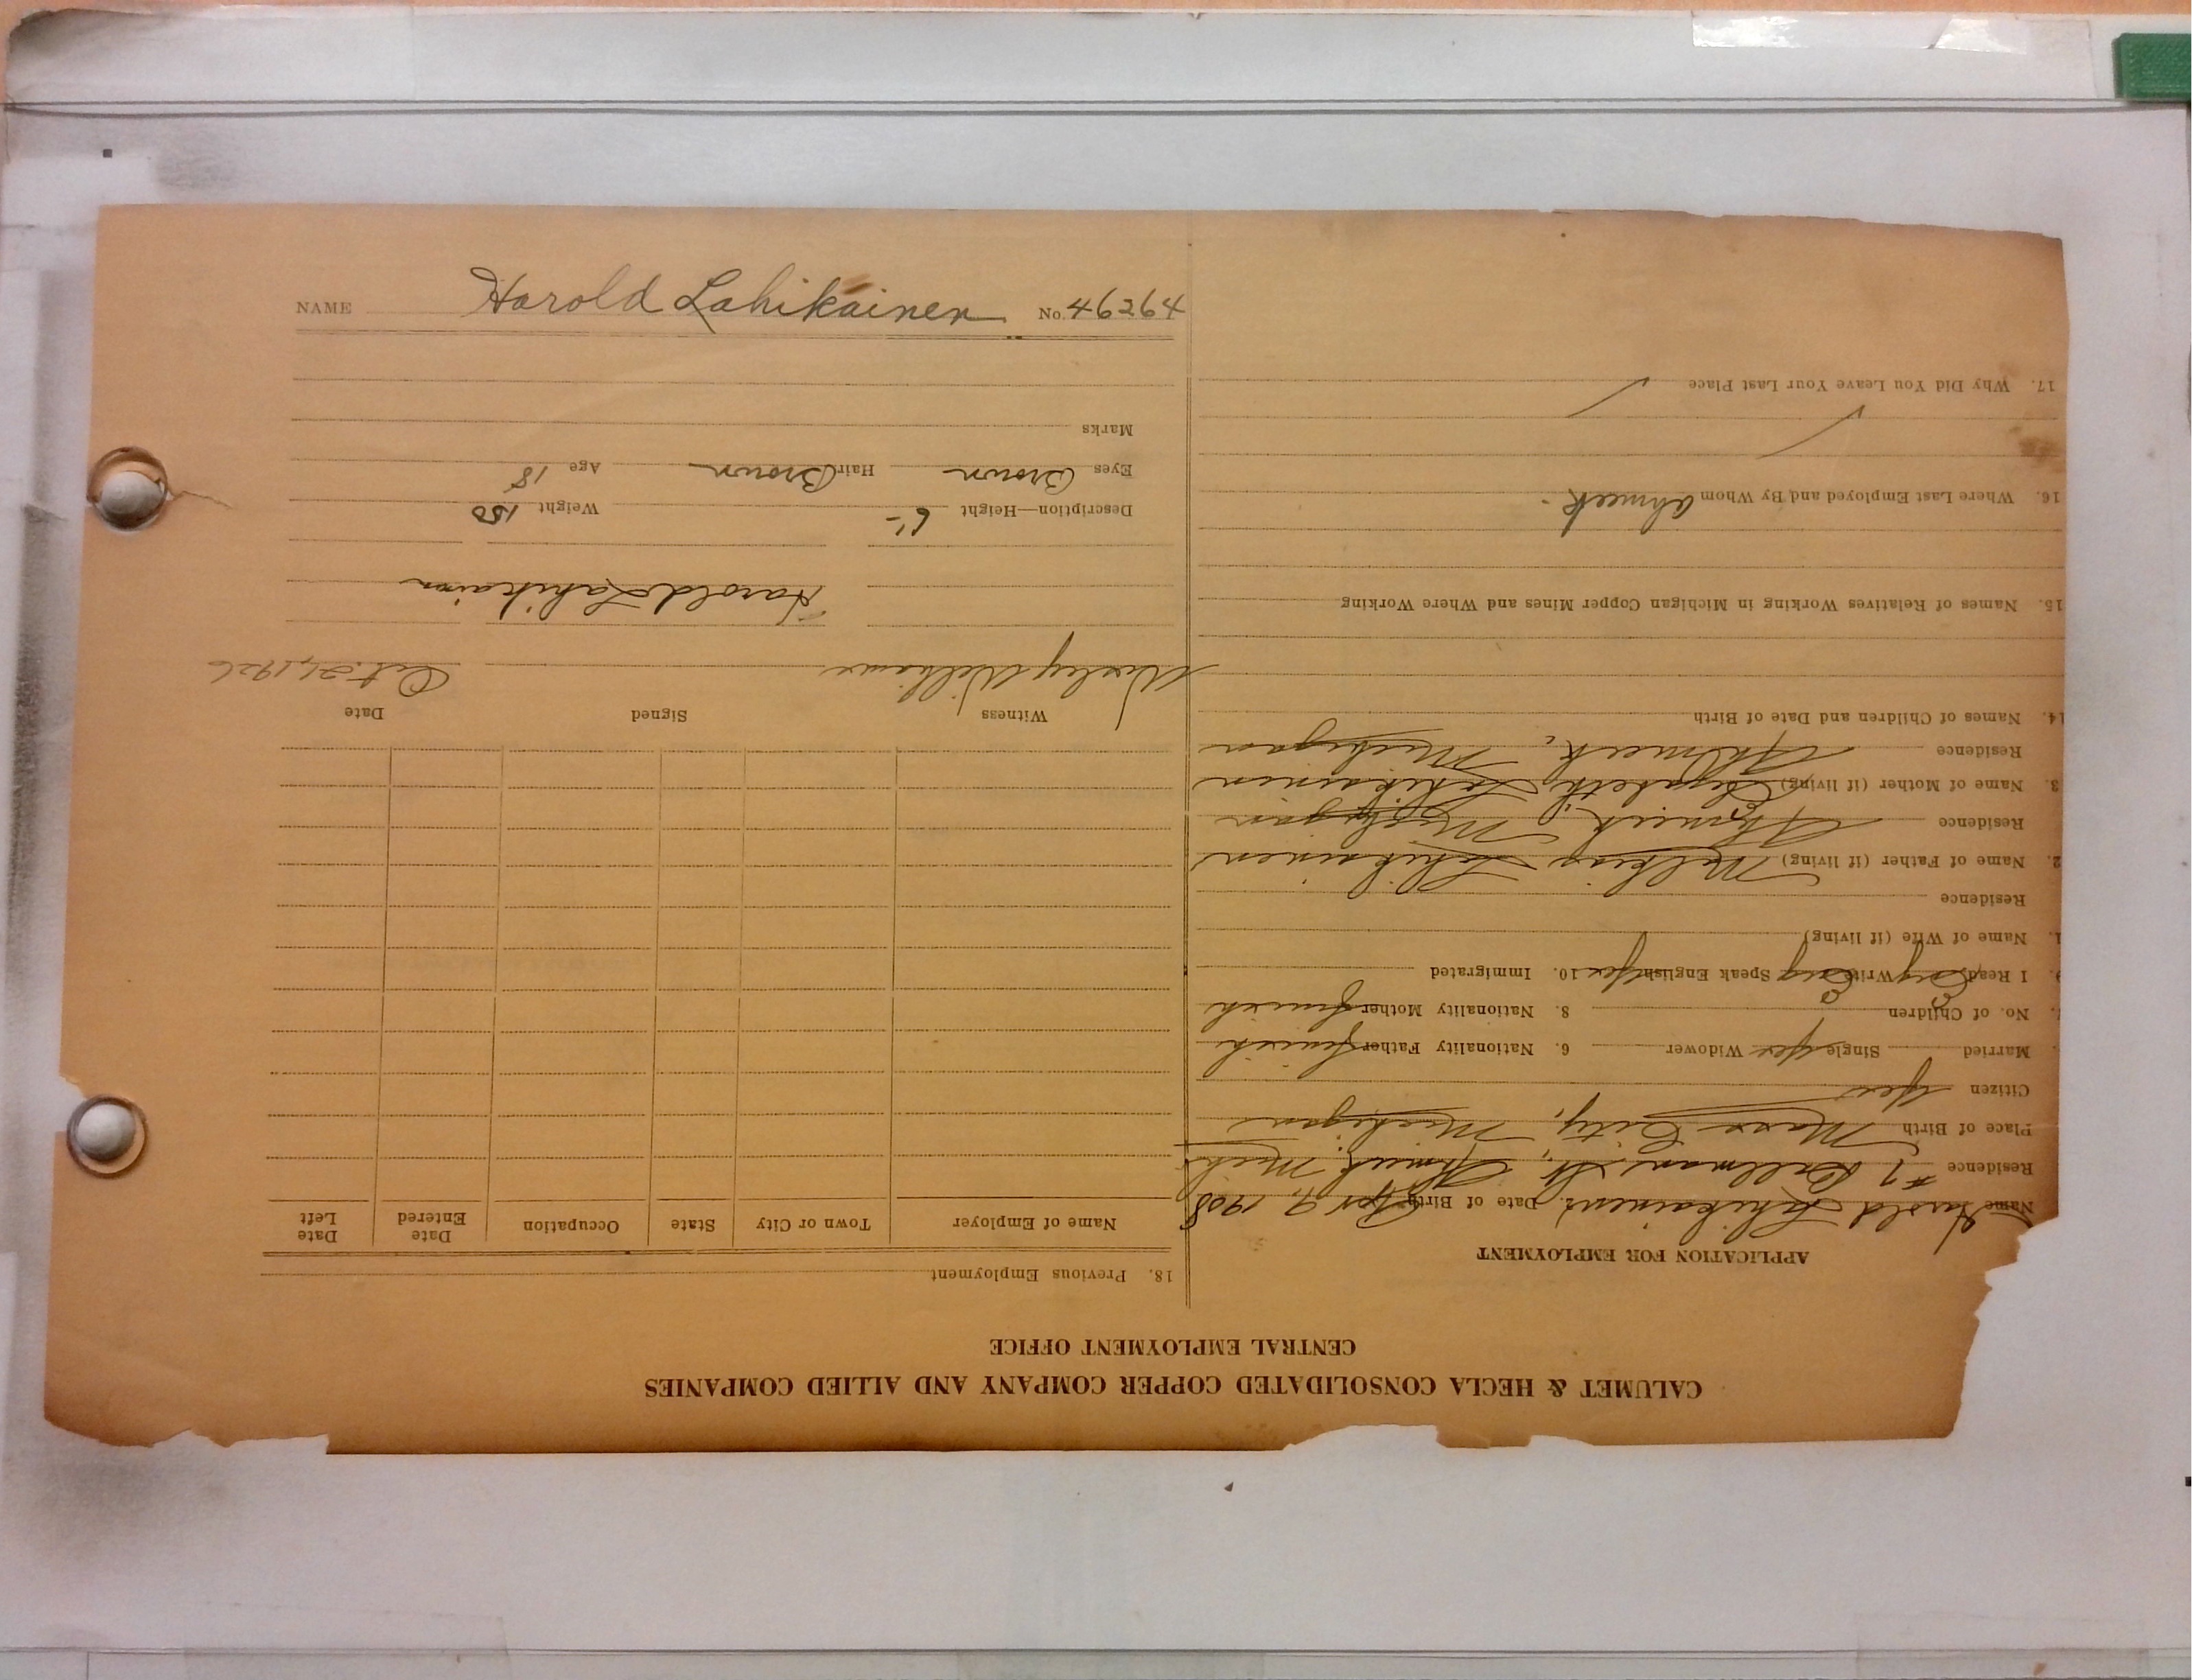 CALUMET & HECLA CONSOLIDATED COPPER COMPANY AND ALLIED COMPANIES
CENTRAL EMPLOYMENT OFFICE
APPLICATION FOR EMPLOYMENT
Name Harold Lahikainen 2. Date of Birth 9, 1908
Residence #7 St, Ahmeek, Mich
Place of Birth Mass City, Michigan
Citizen Yes
Married Single Yes Widower 6. Nationality Father Finnish
No. of Children 0 8. Nationality Mother Finnish
9. I Read Eng Write Eng Speak English Yes 10. Immigrated
1. Name of Wife (if living)
Residence
2. Name of Father (if living) Lahikainen
Residence Ahmeek, Michigan
3. Name of Mother (if living) Elizabeth Lahikainen
Residence Ahmeek, Michigan
14. Names of Children and Date of Birth
15. Names of Relatives Working in Michigan Copper Mines and Where Working
16. Where Last Employed and By Whom Ahmeek -
17. Why Did You Leave Your Last Place
18. Previous Employment
Name of Employer Town or City State Occupation Date Entered Date Left
Witness Signed Date
Williams Oct. 21, 1926
Harold Lahikainen
Description—Height 6'- Weight 150
Eyes Brown Hair Brown Age 18
Marks
NAME Harold Lahikainen No. 46264